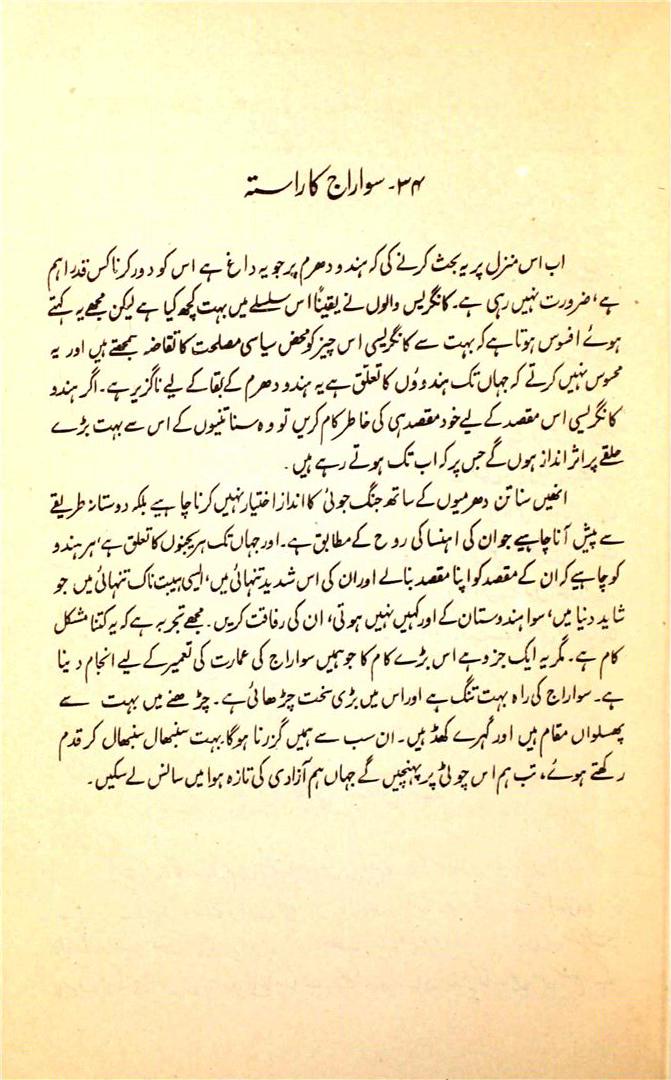 ۳۴۔ سواراج کا راستہ
اب اس منزل پر یہ بحث کرنے کی کہ ہندو دھرم پر جو یہ داغ ہے اس کو دور کرنا کس قدر اہم
ہے، ضرورت نہیں رہی ہے۔ کانگریس والوں نے یقیناً اس سلسلے میں بہت کچھ کیا ہے لیکن مجھے یہ کہتے
ہوئے افسوس ہوتا ہے کہ بہت سے کانگریسی اس چیز کو محض سیاسی مصلحت کا تقاضہ سمجھتے ہیں اور یہ
محسوس نہیں کرتے کہ جہاں تک ہندوؤں کا تعلق ہے یہ ہندو دھرم کے بقا کے لیے ناگزیر ہے۔ اگر ہندو
کانگریسی اس مقصد کے لیے خود مقصد ہی کی خاطر کام کریں تو وہ سناتنیوں کے اس سے بہت بڑے
حلقے پر اثر انداز ہوں گے جس پر کہ اب تک ہوتے رہے ہیں۔
انھیں سناتن دھرمیوں کے ساتھ جنگ جوئی کا انداز اختیار نہیں کرنا چاہیے بلکہ دوستانہ طریقے
سے پیش آنا چاہیے جو ان کی اہنسا کی روح کے مطابق ہے۔ اور جہاں تک ہریجنوں کا تعلق ہے، ہر ہندو
کو چاہیے کہ ان کے مقصد کو اپنا مقصد بنالے اور ان کی اس شدید تنہائی میں، ایسی ہیبت ناک تنہائی میں جو
شاید دنیا میں، سوا ہندوستان کے اور کہیں نہیں ہوتی، ان کی رفاقت کریں۔ مجھے تجربہ ہے کہ یہ کتنا مشکل
کام ہے۔ مگر یہ ایک جزو ہے اس بڑے کام کا جو ہمیں سواراج کی عمارت کی تعمیر کے لیے انجام دینا
ہے۔ سواراج کی راہ بہت تنگ ہے اور اس میں بڑی سخت چڑھائی ہے۔ چڑھنے میں بہت سے
پھسلواں مقام ہیں اور گہرے کھڈ ہیں۔ ان سب سے ہمیں گزرنا ہوگا بہت سنبھال سنبھال کر قدم
رکھتے ہوئے، تب ہم اس چوٹی پر پہنچیں گے جہاں ہم آزادی کی تازہ ہوا میں سانس لے سکیں۔